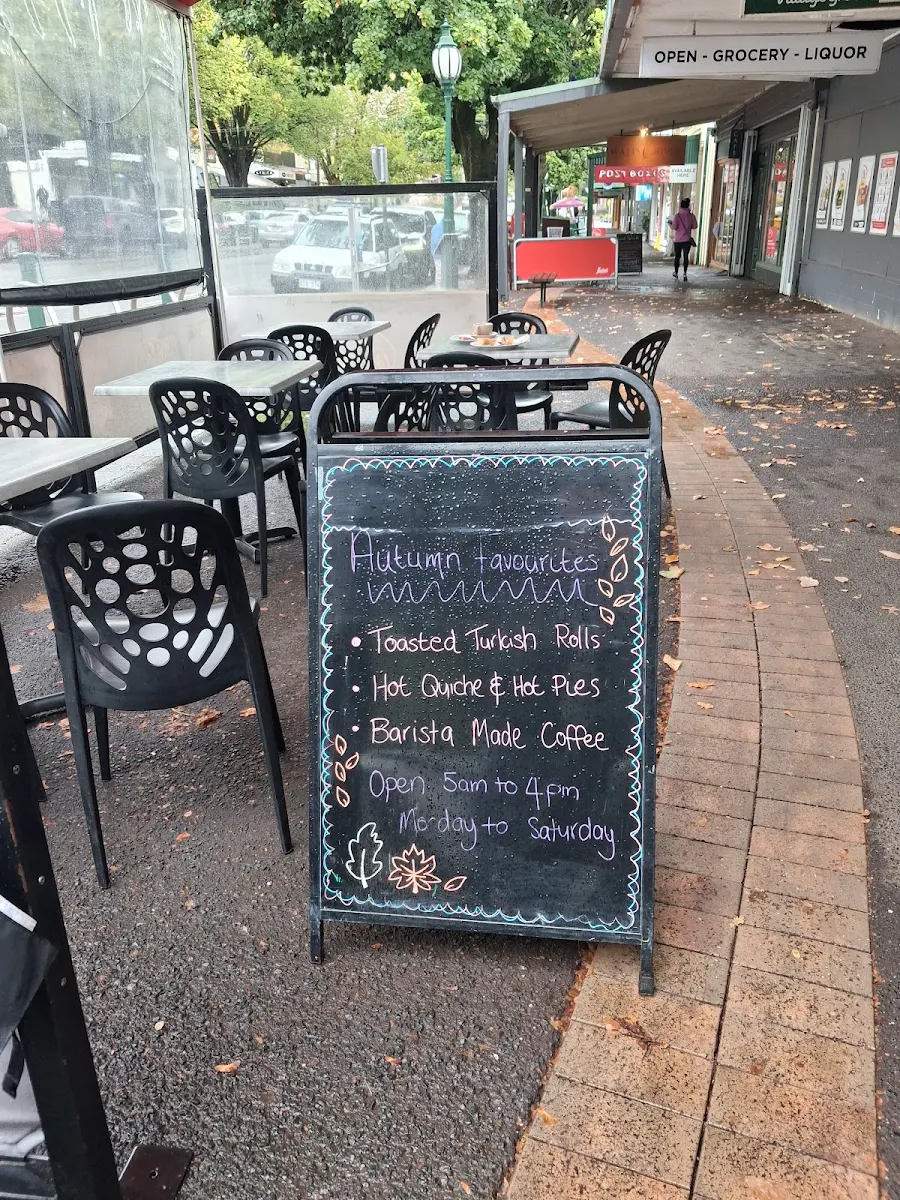 OPEN - GROCERY - LIQUOR
POST OFFICE
AVAILABLE
HERE
Autumn favourites
• Toasted Turkish Rolls
• Hot Quiche & Hot Pies
• Barista Made Coffee
Open 5am to 4pm
Monday to Saturday